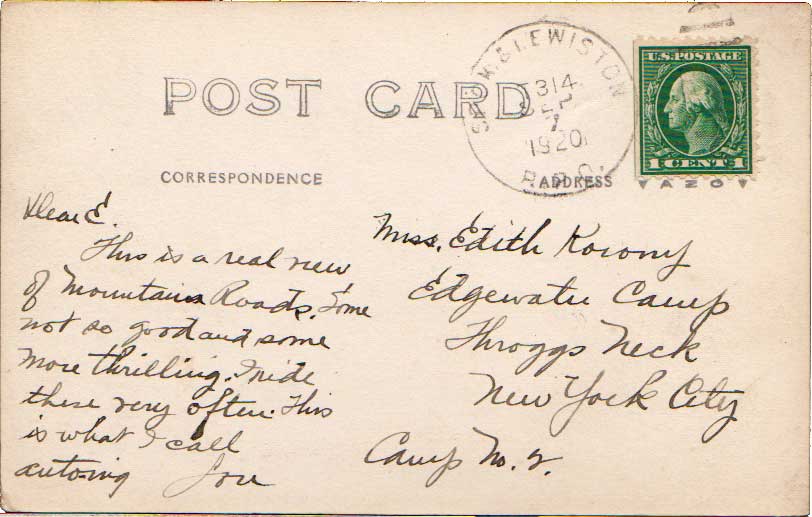 POST CARD
CORRESPONDENCE
ADDRESS
& LEWISTON
314
SEP
7
1920
R.P.O.
U.S. POSTAGE
1 CENT 1
AZO
Dear E.
This is a real view
of Mountain Roads. Some
not so good and some
more thrilling. I ride
these very often. This
is what I call
autoing Lou
Miss. Edith
Edgewater Camp
Throggs Neck
New York City
Camp No. 2.